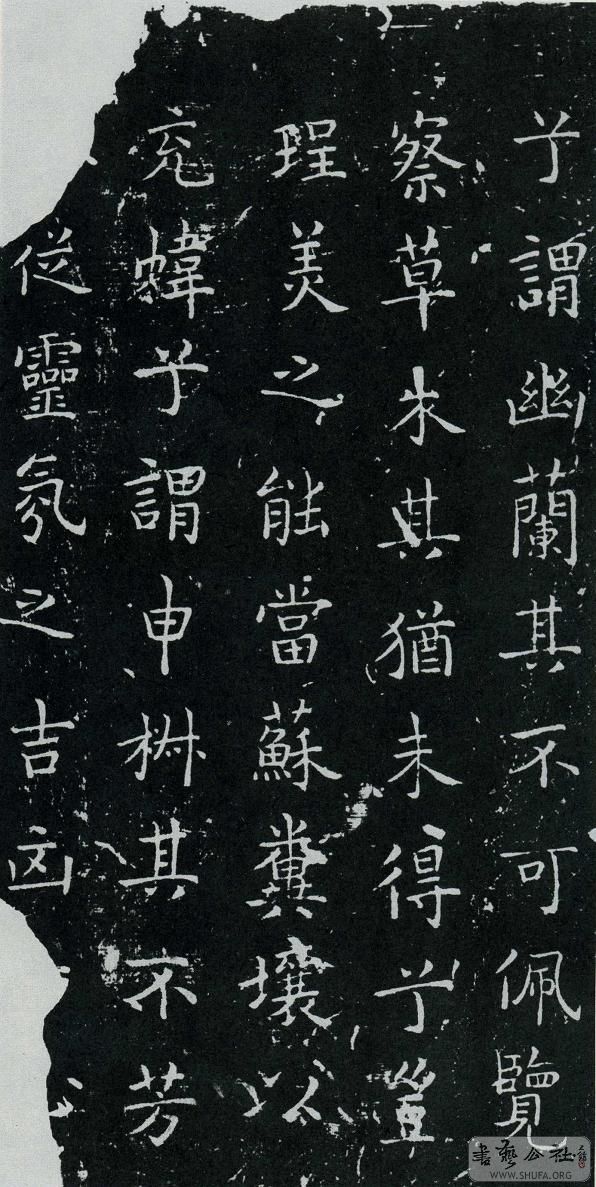 兮謂幽蘭其不可佩覽
察草木其猶未得兮豈
珵美之能當蘇糞壤以
充幃兮謂申椒其不芳
從靈氛之吉
書藝公社
WWW.SHUFA.ORG